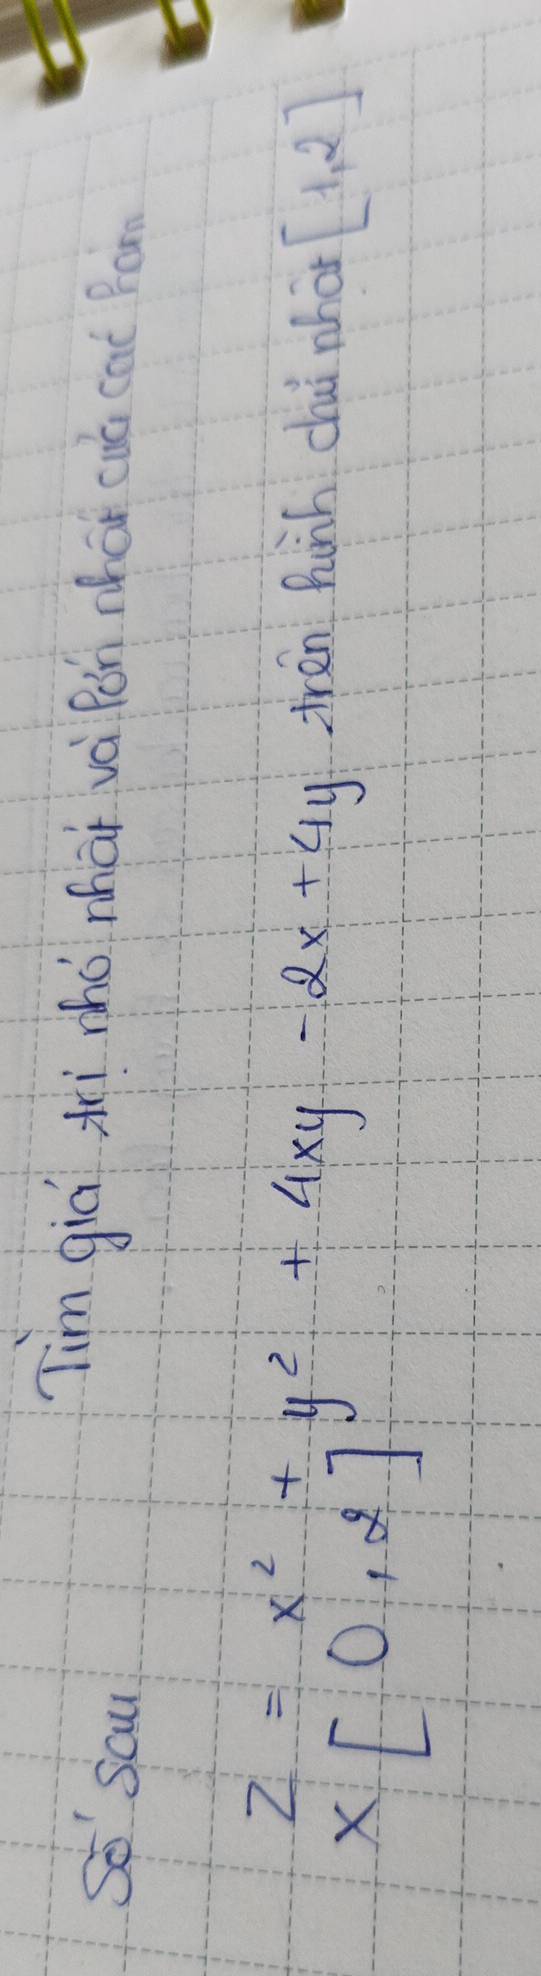 Tìm giá trị nhỏ nhất và lớn nhất của các hàm
số sau
z = x² + y² + 4xy - 2x + 4y trên hình chữ nhật [1,2]
x [0,2]